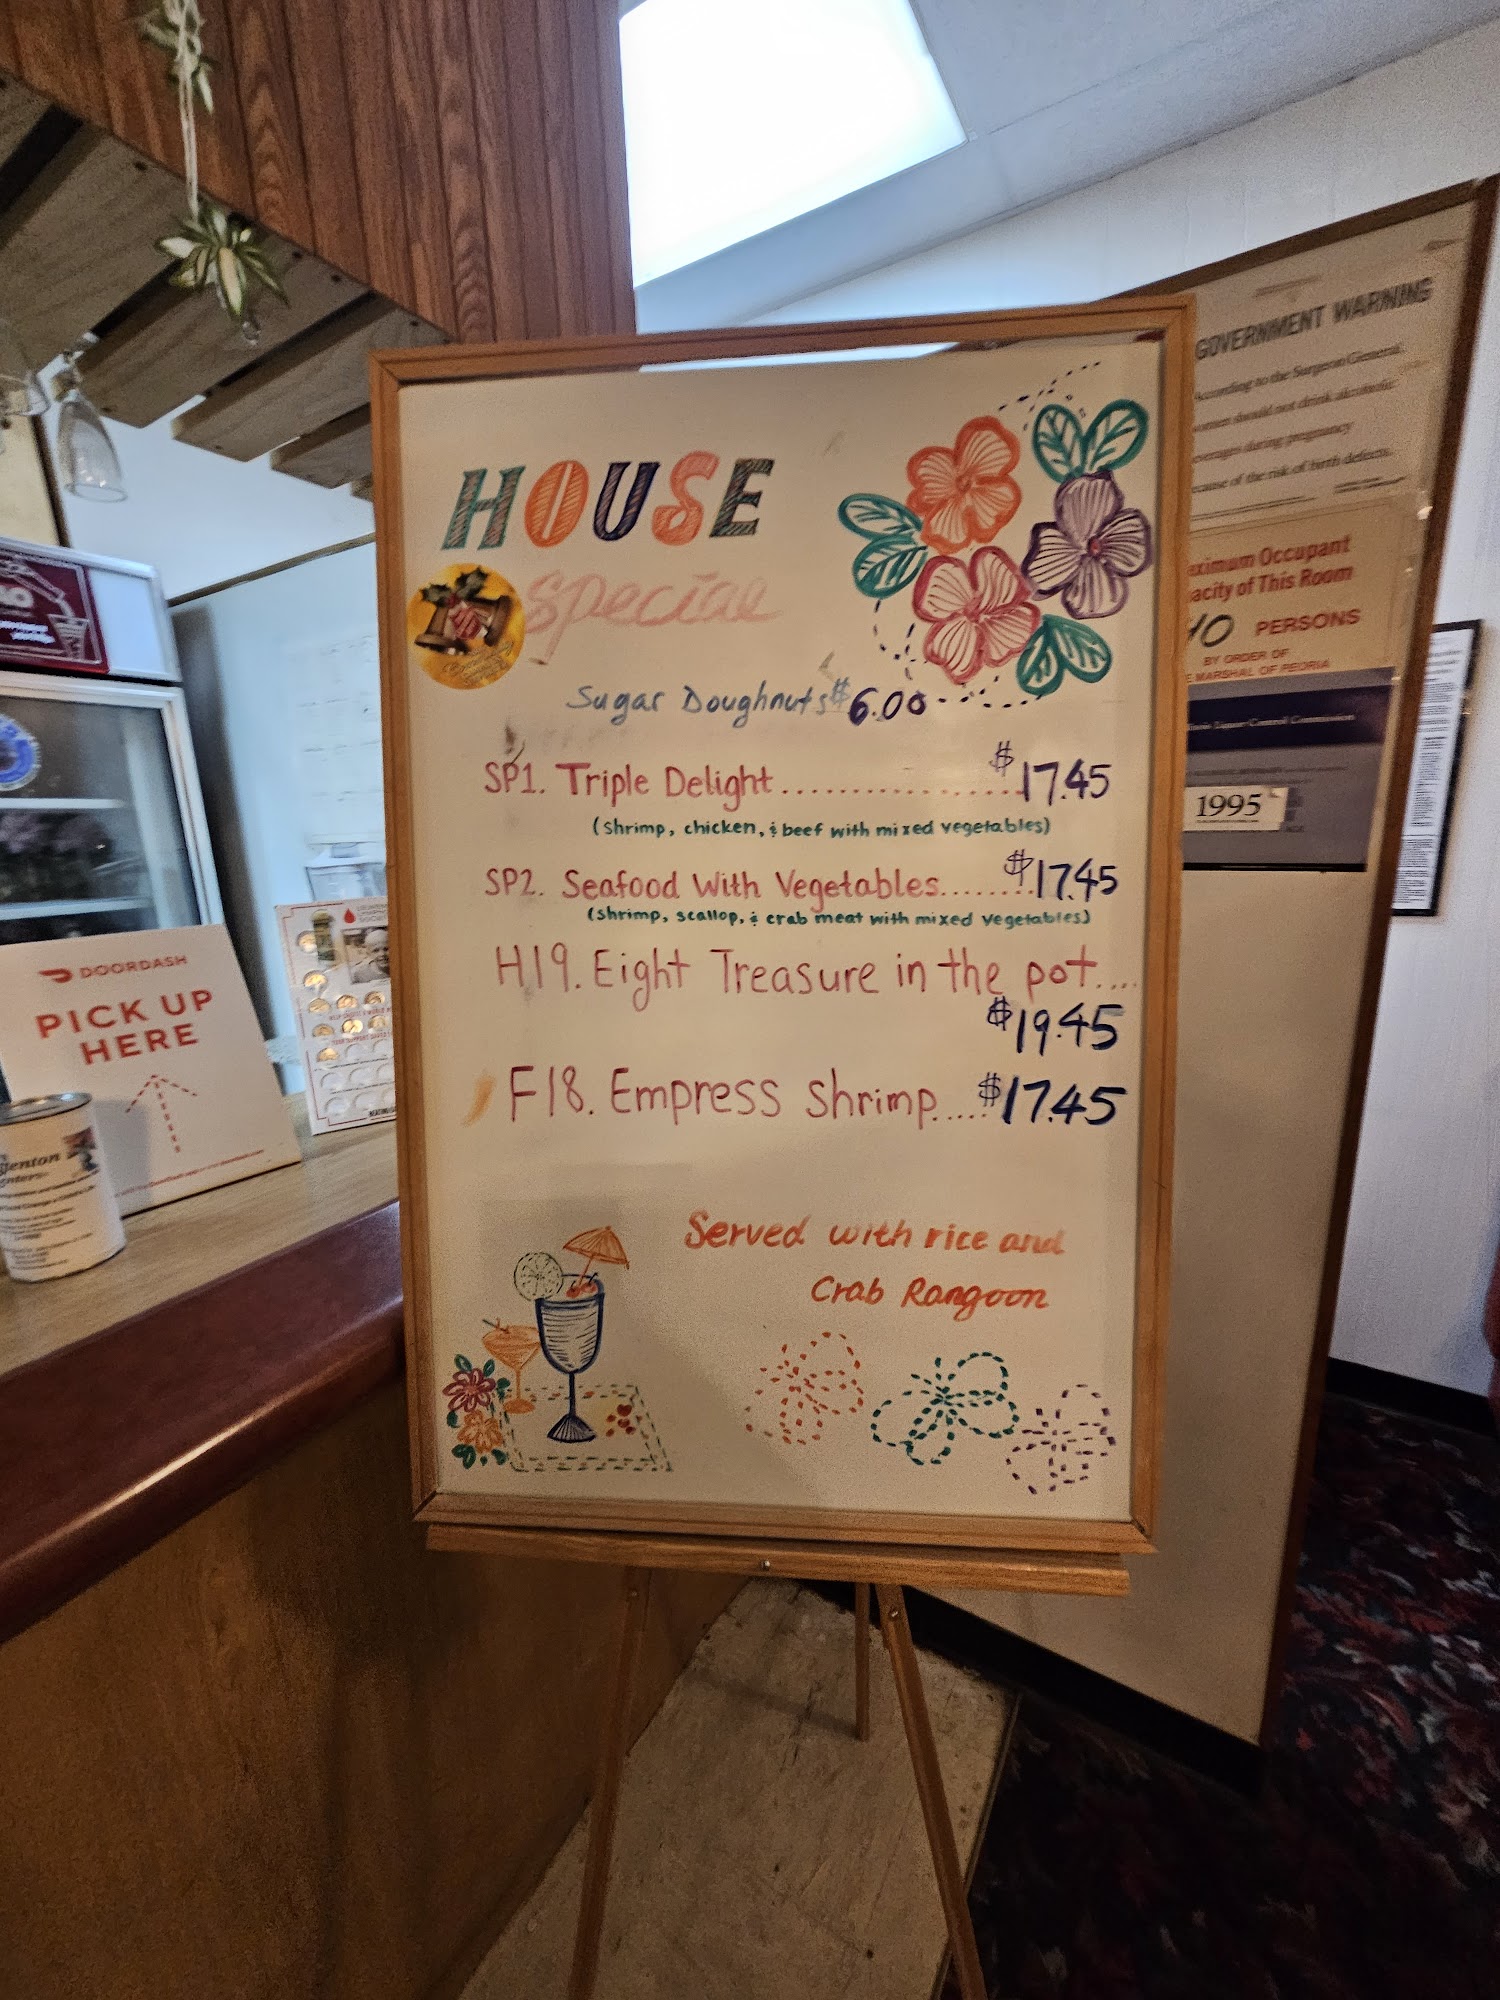 HOUSE
Special
Sugar Doughnuts $6.00
SP1. Triple Delight.................$17.45
(shrimp, chicken, & beef with mixed vegetables)
SP2. Seafood With Vegetables........$17.45
(shrimp, scallop, & crab meat with mixed vegetables)
H19. Eight Treasure in the pot....
$19.45
F18. Empress Shrimp.....$17.45
Served with rice and
Crab Rangoon
DOORDASH
PICK UP
HERE
GOVERNMENT WARNING
According to the Surgeon General,
women should not drink alcoholic
beverages during pregnancy
because of the risk of birth defects.
Maximum Occupant
Capacity of This Room
40 PERSONS
BY ORDER OF
MARSHAL OF PEORIA
Liquor Control Commission
1995